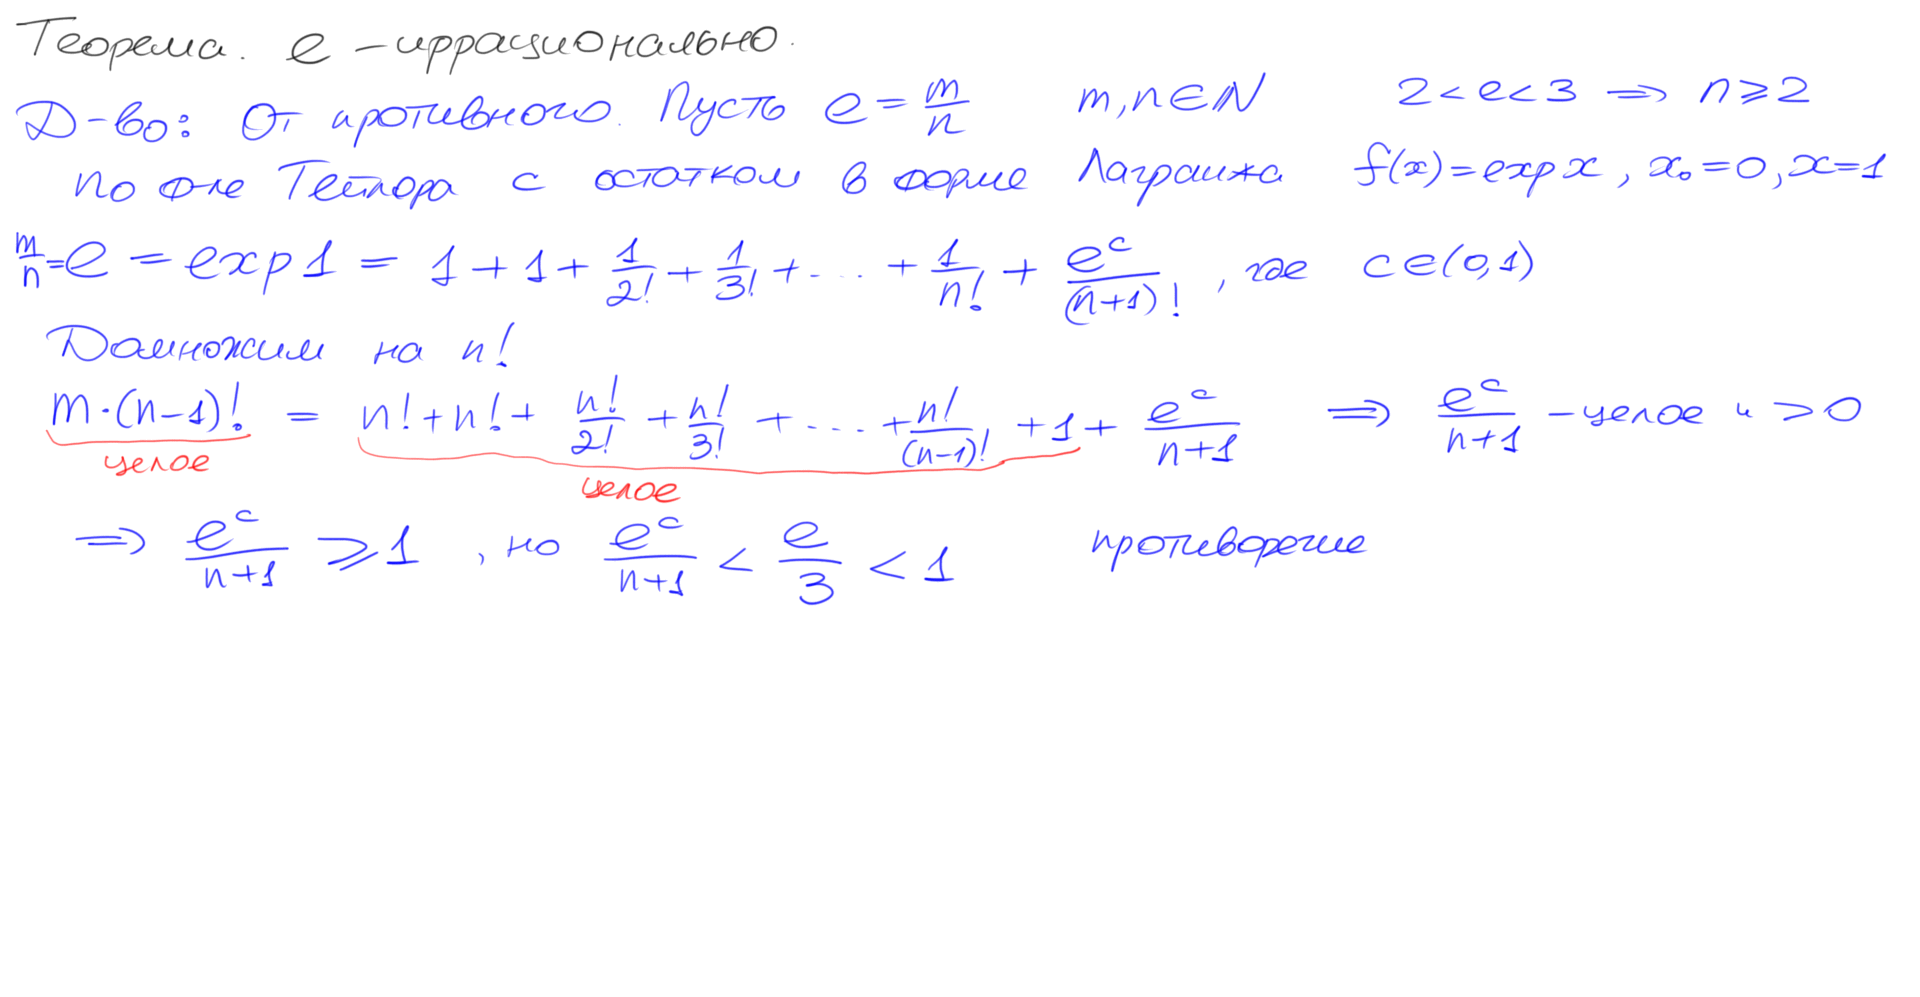 Теорема. e – иррационально.
Д-во: От противного. Пусть e = m/n m, n ∈ ℕ 2 < e < 3 ⇒ n ⩾ 2
По ф-ле Тейлора с остатком в форме Лагранжа f(x) = exp x, x₀ = 0, x = 1
m/n = e = exp 1 = 1 + 1 + 1/2! + 1/3! + ... + 1/n! + e^c/(n+1)!, где c ∈ (0,1)
Домножим на n!
m·(n-1)! = n! + n! + n!/2! + n!/3! + ... + n!/(n-1)! + 1 + e^c/(n+1) ⇒ e^c/(n+1) – целое и > 0
целое
целое
⇒ e^c/(n+1) ⩾ 1, но e^c/(n+1) < e/3 < 1 противоречие